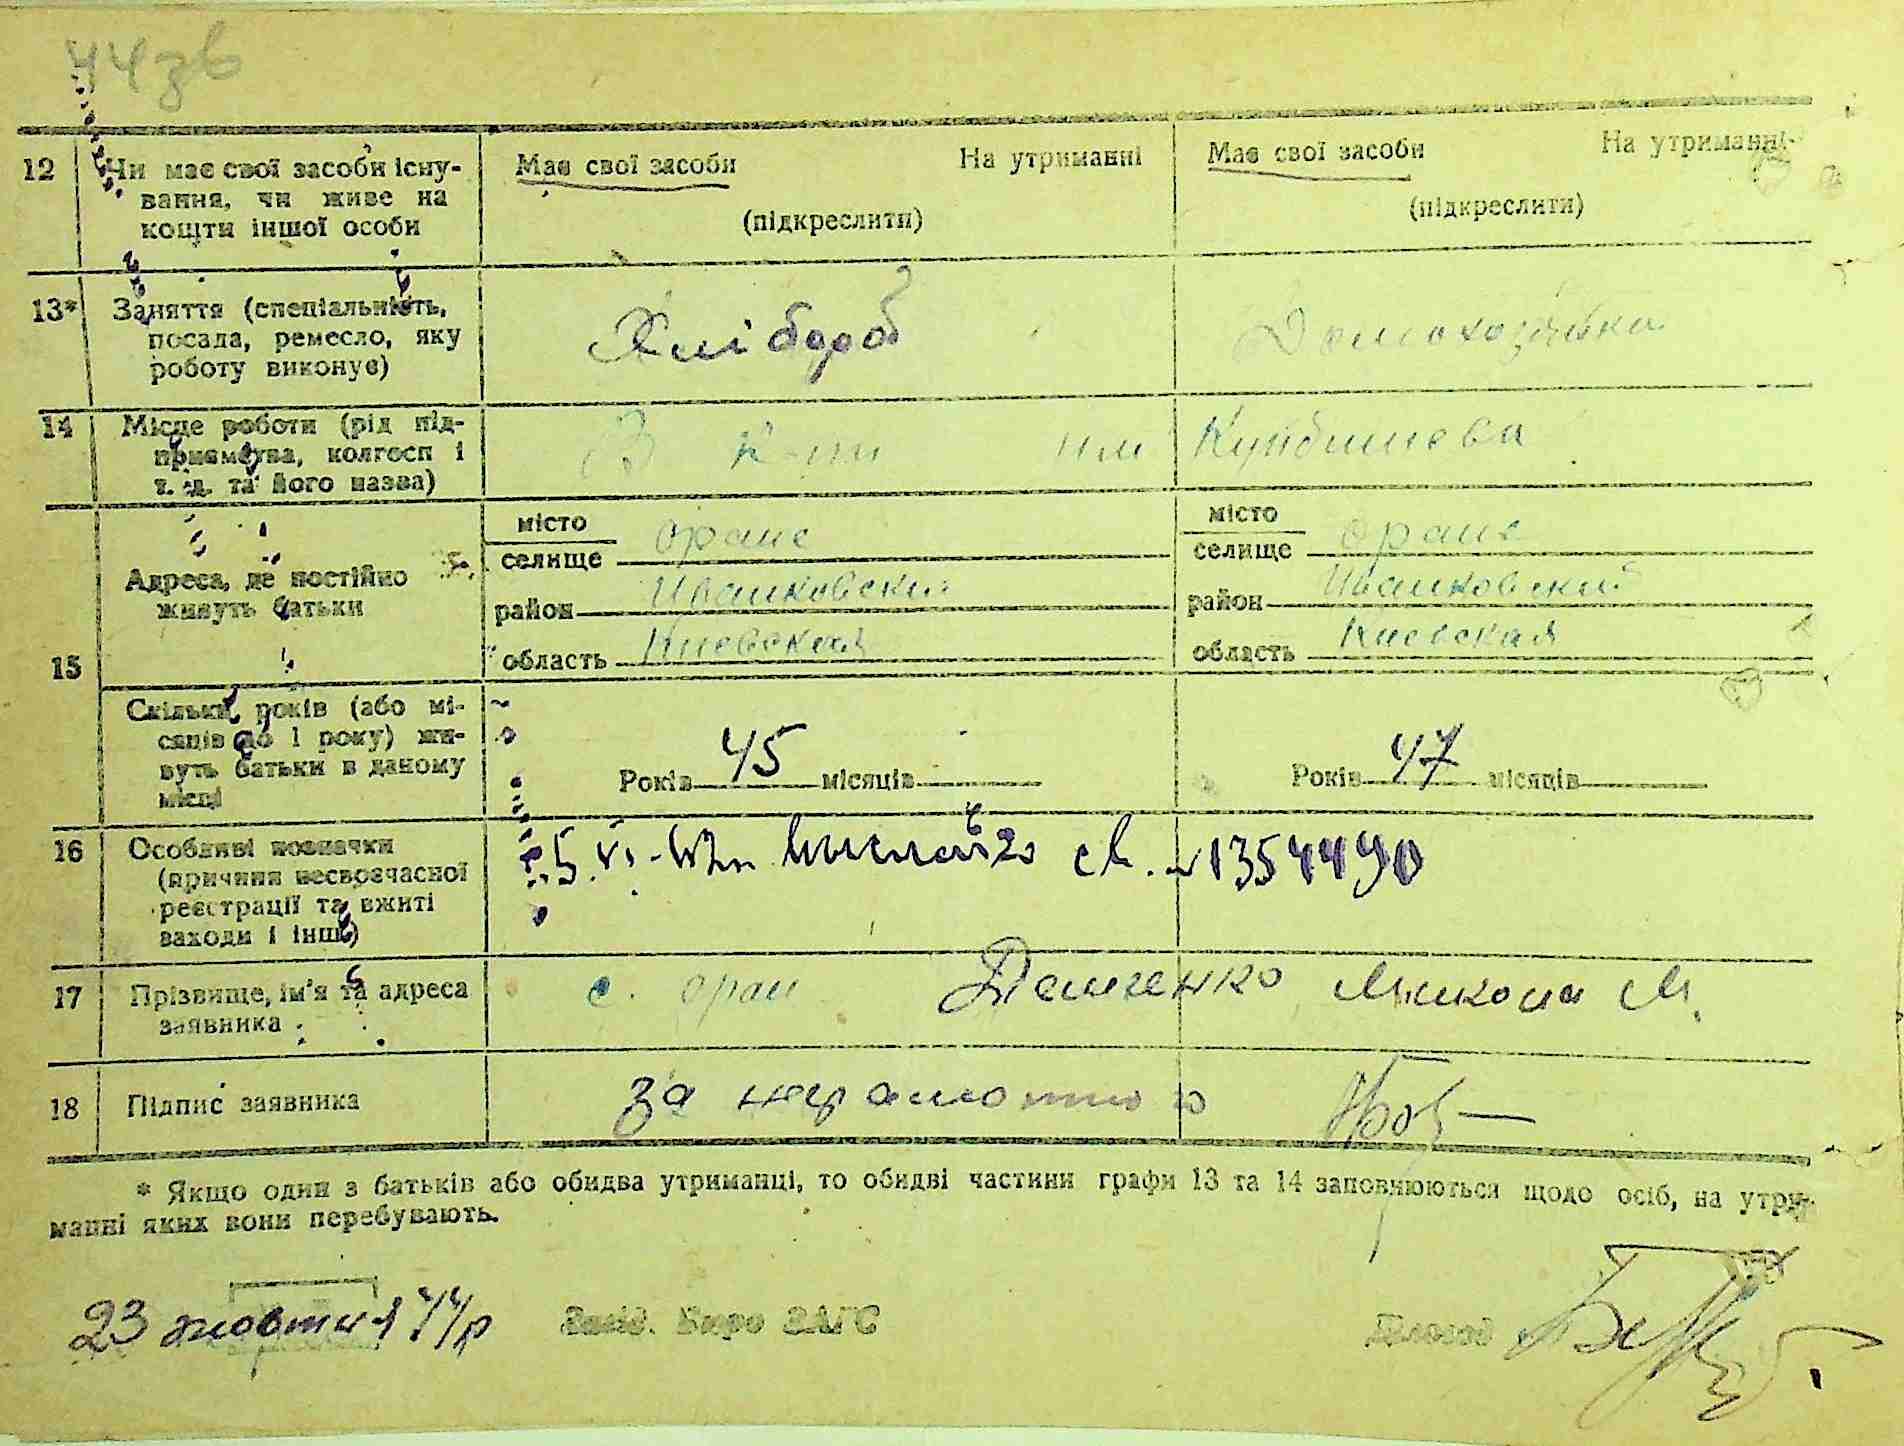 44зв
12 Чи має свої засоби існу- Має свої засоби На утриманні Має свої засоби На утриманні
вання, чи живе на (підкреслити) (підкреслити)
кошти іншої особи
13* Заняття (спеціальність, Хлібороб Домохозяйка
посада, ремесло, яку
роботу виконує)
14 Місце роботи (рід під- В к-ті им Куйбишева
приємства, колгосп і
т. д. та його назва)
15 Адреса, де постійно живуть батьки
місто
селище Оране
район Иванковский
область Киевская
місто
селище Оране
район Иванковский
область Киевская
Скільки років (або мі-
сяців до 1 року) жи-
вуть батьки в даному
місці
Років 45 місяців Років 47 місяців
16 Особливі позначки
(причини несвоєчасної
реєстрації та вжиті
заходи і інш.)
1354490
17 Прізвище, ім'я та адреса
заявника
с. Оран Демченко Микола М.
18 Підпис заявника за неграмотного
* Якщо один з батьків або обидва утриманці, то обидві частини графи 13 та 14 заповнюються щодо осіб, на утри-
манні яких вони перебувають.
23 жовтня 44р Завід. Бюро ЗАГС Діловод